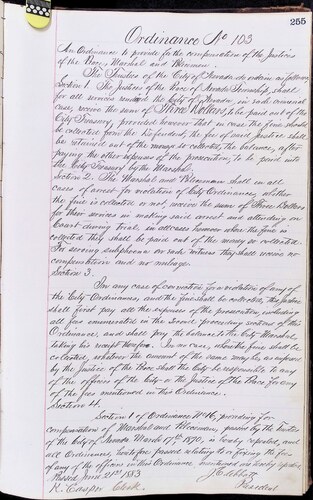 255
Ordinance No 103
An Ordinance to provide for the compensation of the Justices
of the Peace, Marshal and Policemen.
The Trustees of the City of Nevada do ordain as follows
Section 1. The Justices of the Peace of Nevada Township, shall
for all services rendered the City of Nevada, in each criminal
case, receive the sum of Three Dollars, to be paid out of the
City Treasury, provided however that in case the fine shall
be collected from the Defendant, the fee of said Justice shall
be retained out of the money so collected, the balance, after
paying the other expenses of the prosecution, to be paid into
the City Treasury by the Marshal.
Section 2. The Marshal and Policemen shall in all
cases of arrest for violation of City Ordinances, whether
the fine is collected or not, receive the sum of Three Dollars
for their services in making said arrest and attending on
Court during trial, in all cases however when the fine is
collected they shall be paid out of the money so collected.
For serving subpoenas on such witness they shall receive no
compensation and no mileage.
Section 3.
In any case of conviction for violation of any of
the City Ordinances, and the fine shall be collected, the Justice
shall first pay all the expenses of the prosecution, including
all fees enumerated in the second preceding sections of this
Ordinance, and shall pay the balance to the City Marshal
taking his receipt therefor. In no case, when the fine shall be
collected, whatever the amount of the same may be, as imposed
by the Justice of the Peace shall the City be responsible to any
of the officers of the City or the Justice of the Peace for any
of the fees mentioned in this Ordinance.
Section 4.
Section 1 of Ordinance No 46, providing for
compensation of Marshal and Policeman, passed by the Trustees
of the City of Nevada March 17th 1870, is hereby repealed, and
all Ordinances, heretofore passed relating to or fixing the fees
of any of the officers in this Ordinance mentioned is hereby repealed
Passed June 21st 1883
K. Casper Clerk
President